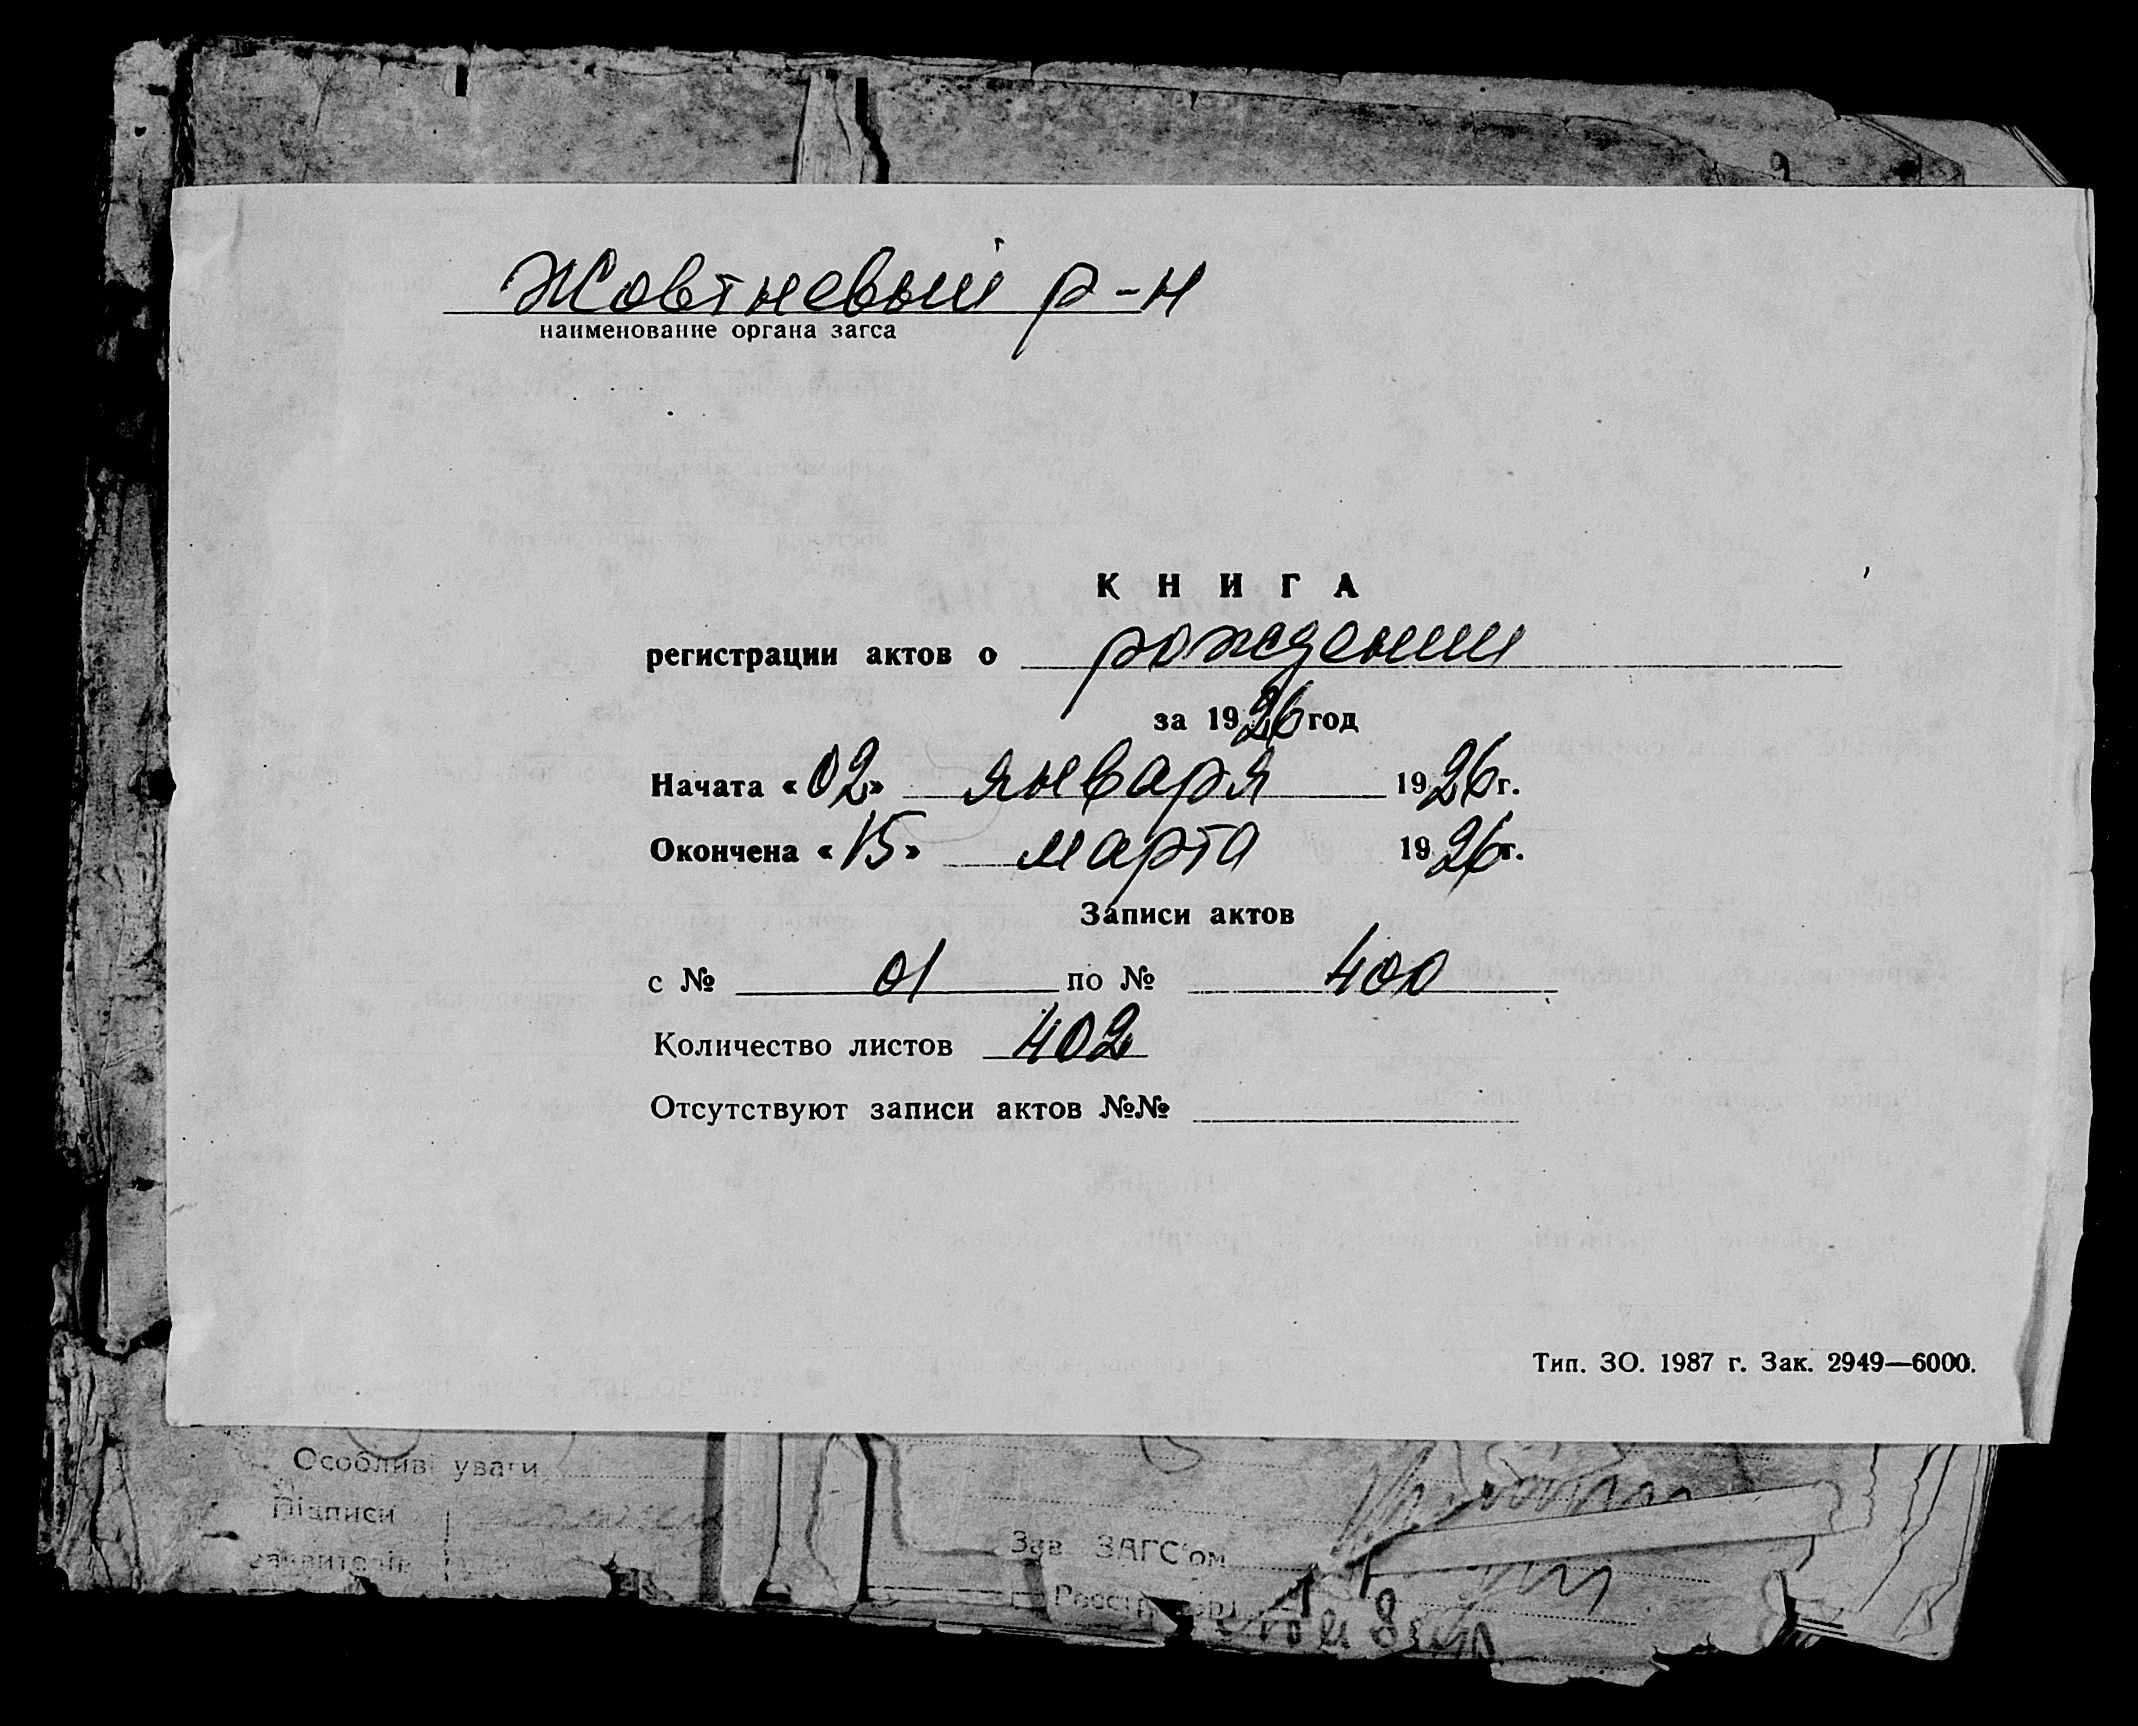 Жовтневый р-н
наименование органа загса
КНИГА
регистрации актов о рождении
за 1926 год
Начата «02» января 1926 г.
Окончена «15» марта 1926 г.
Записи актов
с № 01 по № 400
Количество листов 402
Отсутствуют записи актов №№
Тип. ЗО. 1987 г. Зак. 2949—6000.
Особливі уваги
Підписи
Зав ЗАГС'ом